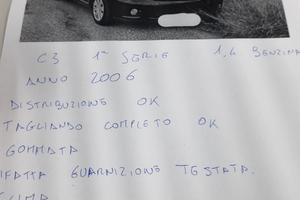 C3 1ª SERIE 1,4 BENZINA
ANNO 2006
DISTRIBUZIONE OK
TAGLIANDO COMPLETO OK
GOMMATA
IFATTA GUARNIZIONE TESTATA.